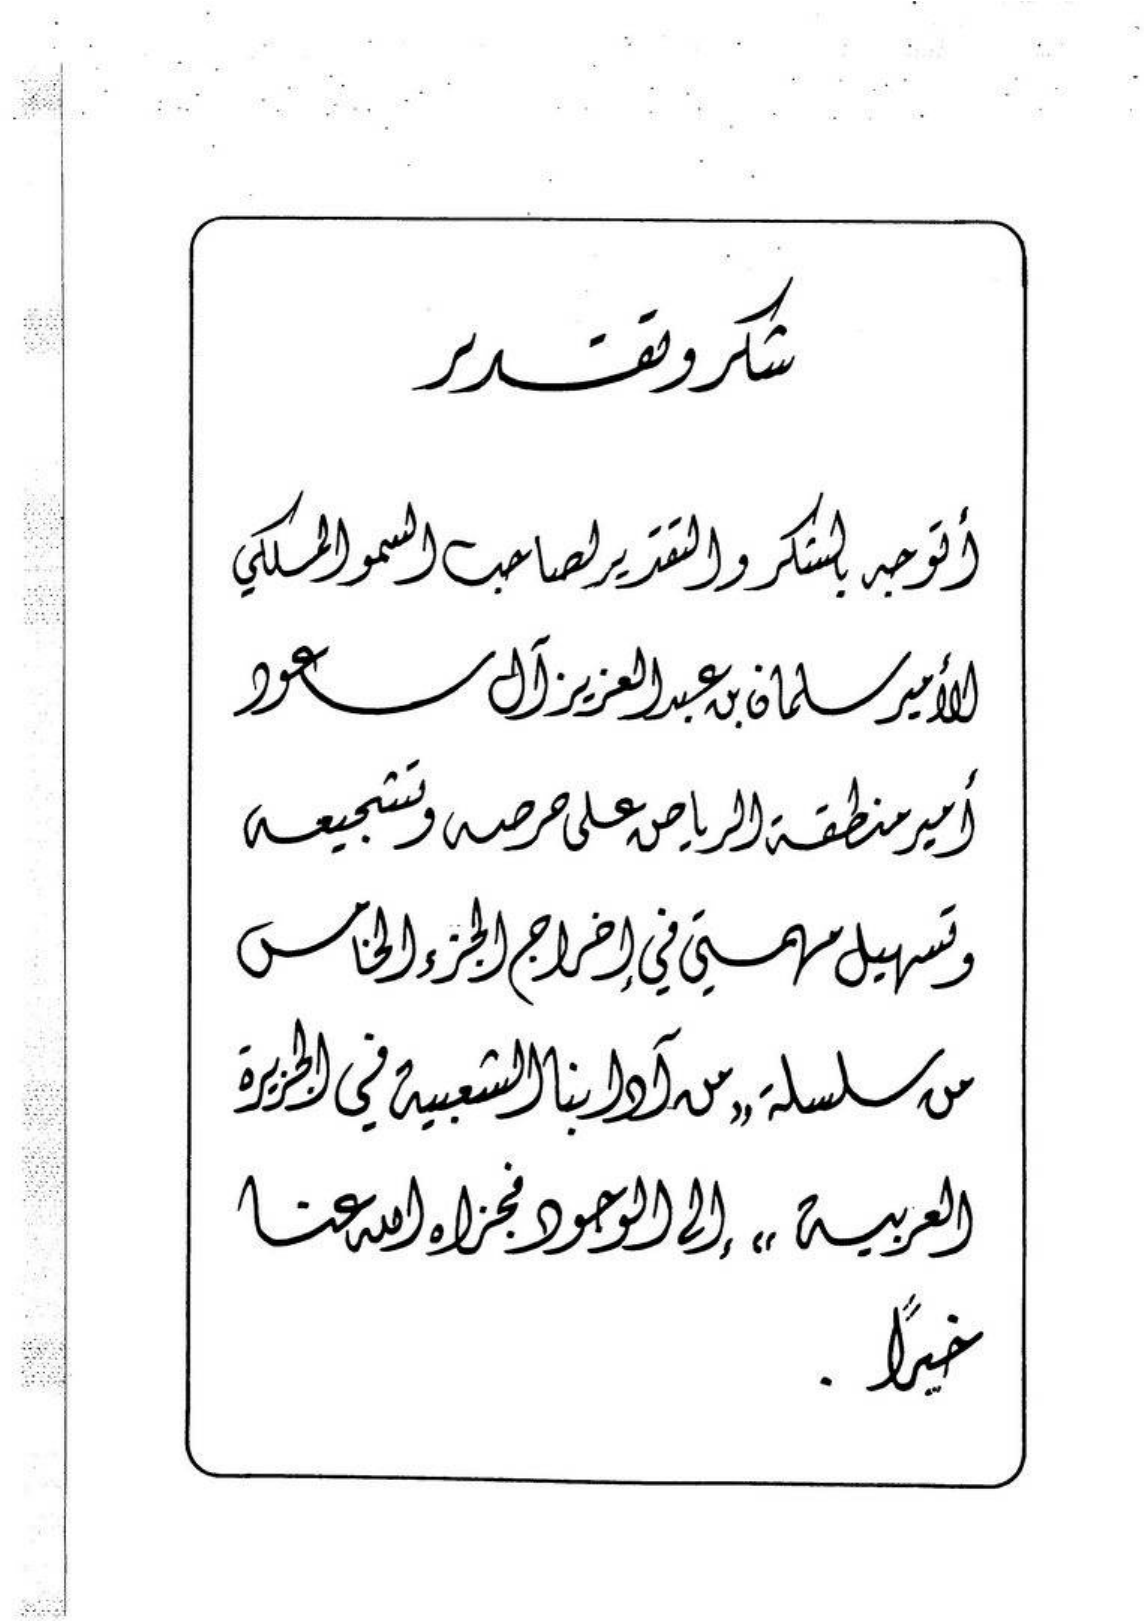 شكر وتقدير
أتوجه بالشكر والتقدير لصاحب السمو الملكي
الأمير سلمان بن عبد العزيز آل سعود
أمير منطقة الرياض على حرصه وتشجيعه
وتسهيل مهمتي في إخراج الجزء الخامس
من سلسلة ,, من آدابنا الشعبية في الجزيرة
العربية ،، إلى الوجود فجزاه الله عنا
خيرًا .